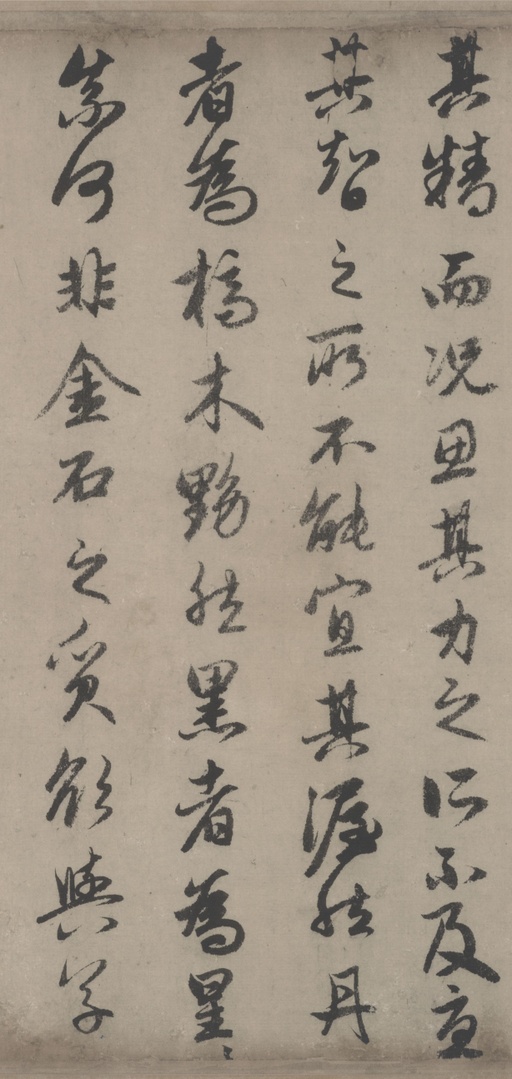 其精而況思其力之所不及憂
其智之所不能宜其渥然丹
者為槁木黟然黑者為星〻
奈何非金石之質欲與草